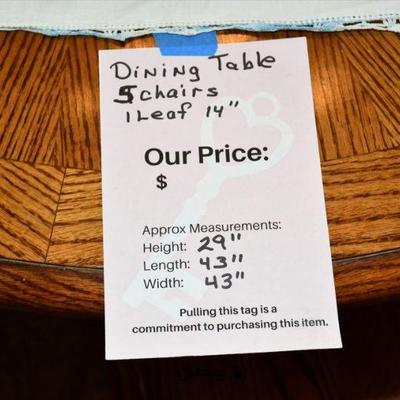 Dining Table
5 chairs
1 Leaf 14"
Our Price:
$
Approx Measurements:
Height: 29"
Length: 43"
Width: 43"
Pulling this tag is a
commitment to purchasing this item.